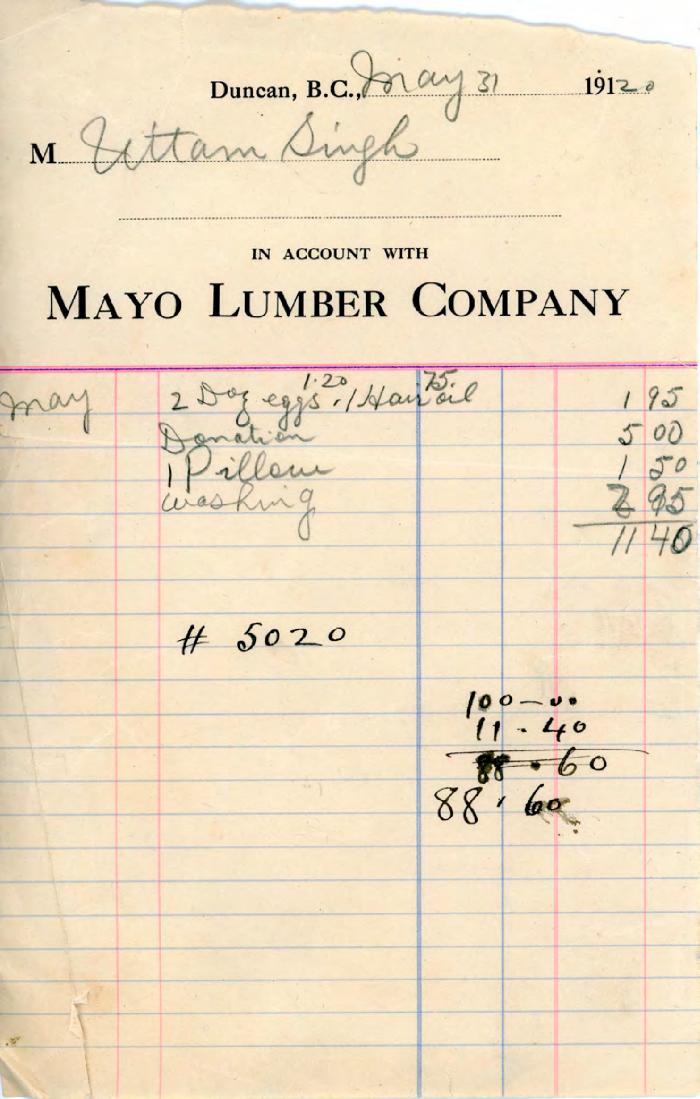 Duncan, B.C., May 31 19120
M Uttam Singh
IN ACCOUNT WITH
MAYO LUMBER COMPANY
1.20 75
May 2 Doz eggs . 1 Hair oil 1 95
Donation 5 00
1 Pillow 1 50
washing 2 95
11 40
# 5020
100-00
11.40
88.60
88.60